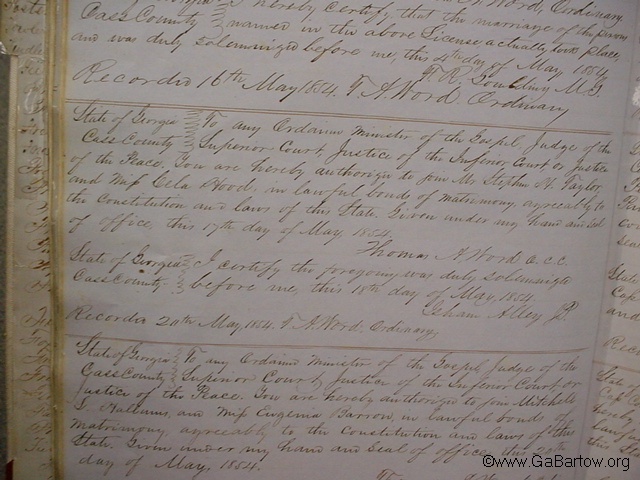 State of Georgia hereby certify, that the marriage of the persons
Cass County named in the above License, actually took place,
and was duly solemnized before me, this 4th day of May 1854.
Recorded 16th May, 1854. T. A. Word Ordinary
State of Georgia To any Ordained Minister of the Gospel, Judge of the
Cass County Superior Court, Justice of the Inferior Court, or Justice
of the Peace. You are hereby authorize to join Mr Stephen H. Taylor
and Miss Cela Hood, in lawful bonds of matrimony, agreeably to
the Constitution and laws of this State. Given under my hand and seal
of office, this 17th day of May, 1854.
Thomas A Word O. C. C.
State of Georgia I certify the foregoing was duly solemnized
Cass County before me, this 18th day of May, 1854.
Isham Alley JP
Recorded 20th May, 1854. T A Word, Ordinary,
State of Georgia To any Ordained Minister of the Gospel, Judge of the
Cass County Superior Court, Justice of the Inferior Court, or
Justice of the Peace. You are hereby authorize to join Mitchell
and Miss Eugenia Barrow, in lawful bonds of
matrimony agreeably to the Constitution and laws of this
State. Given under my hand and seal of office, this
day of May, 1854.
©www.GaBartow.org